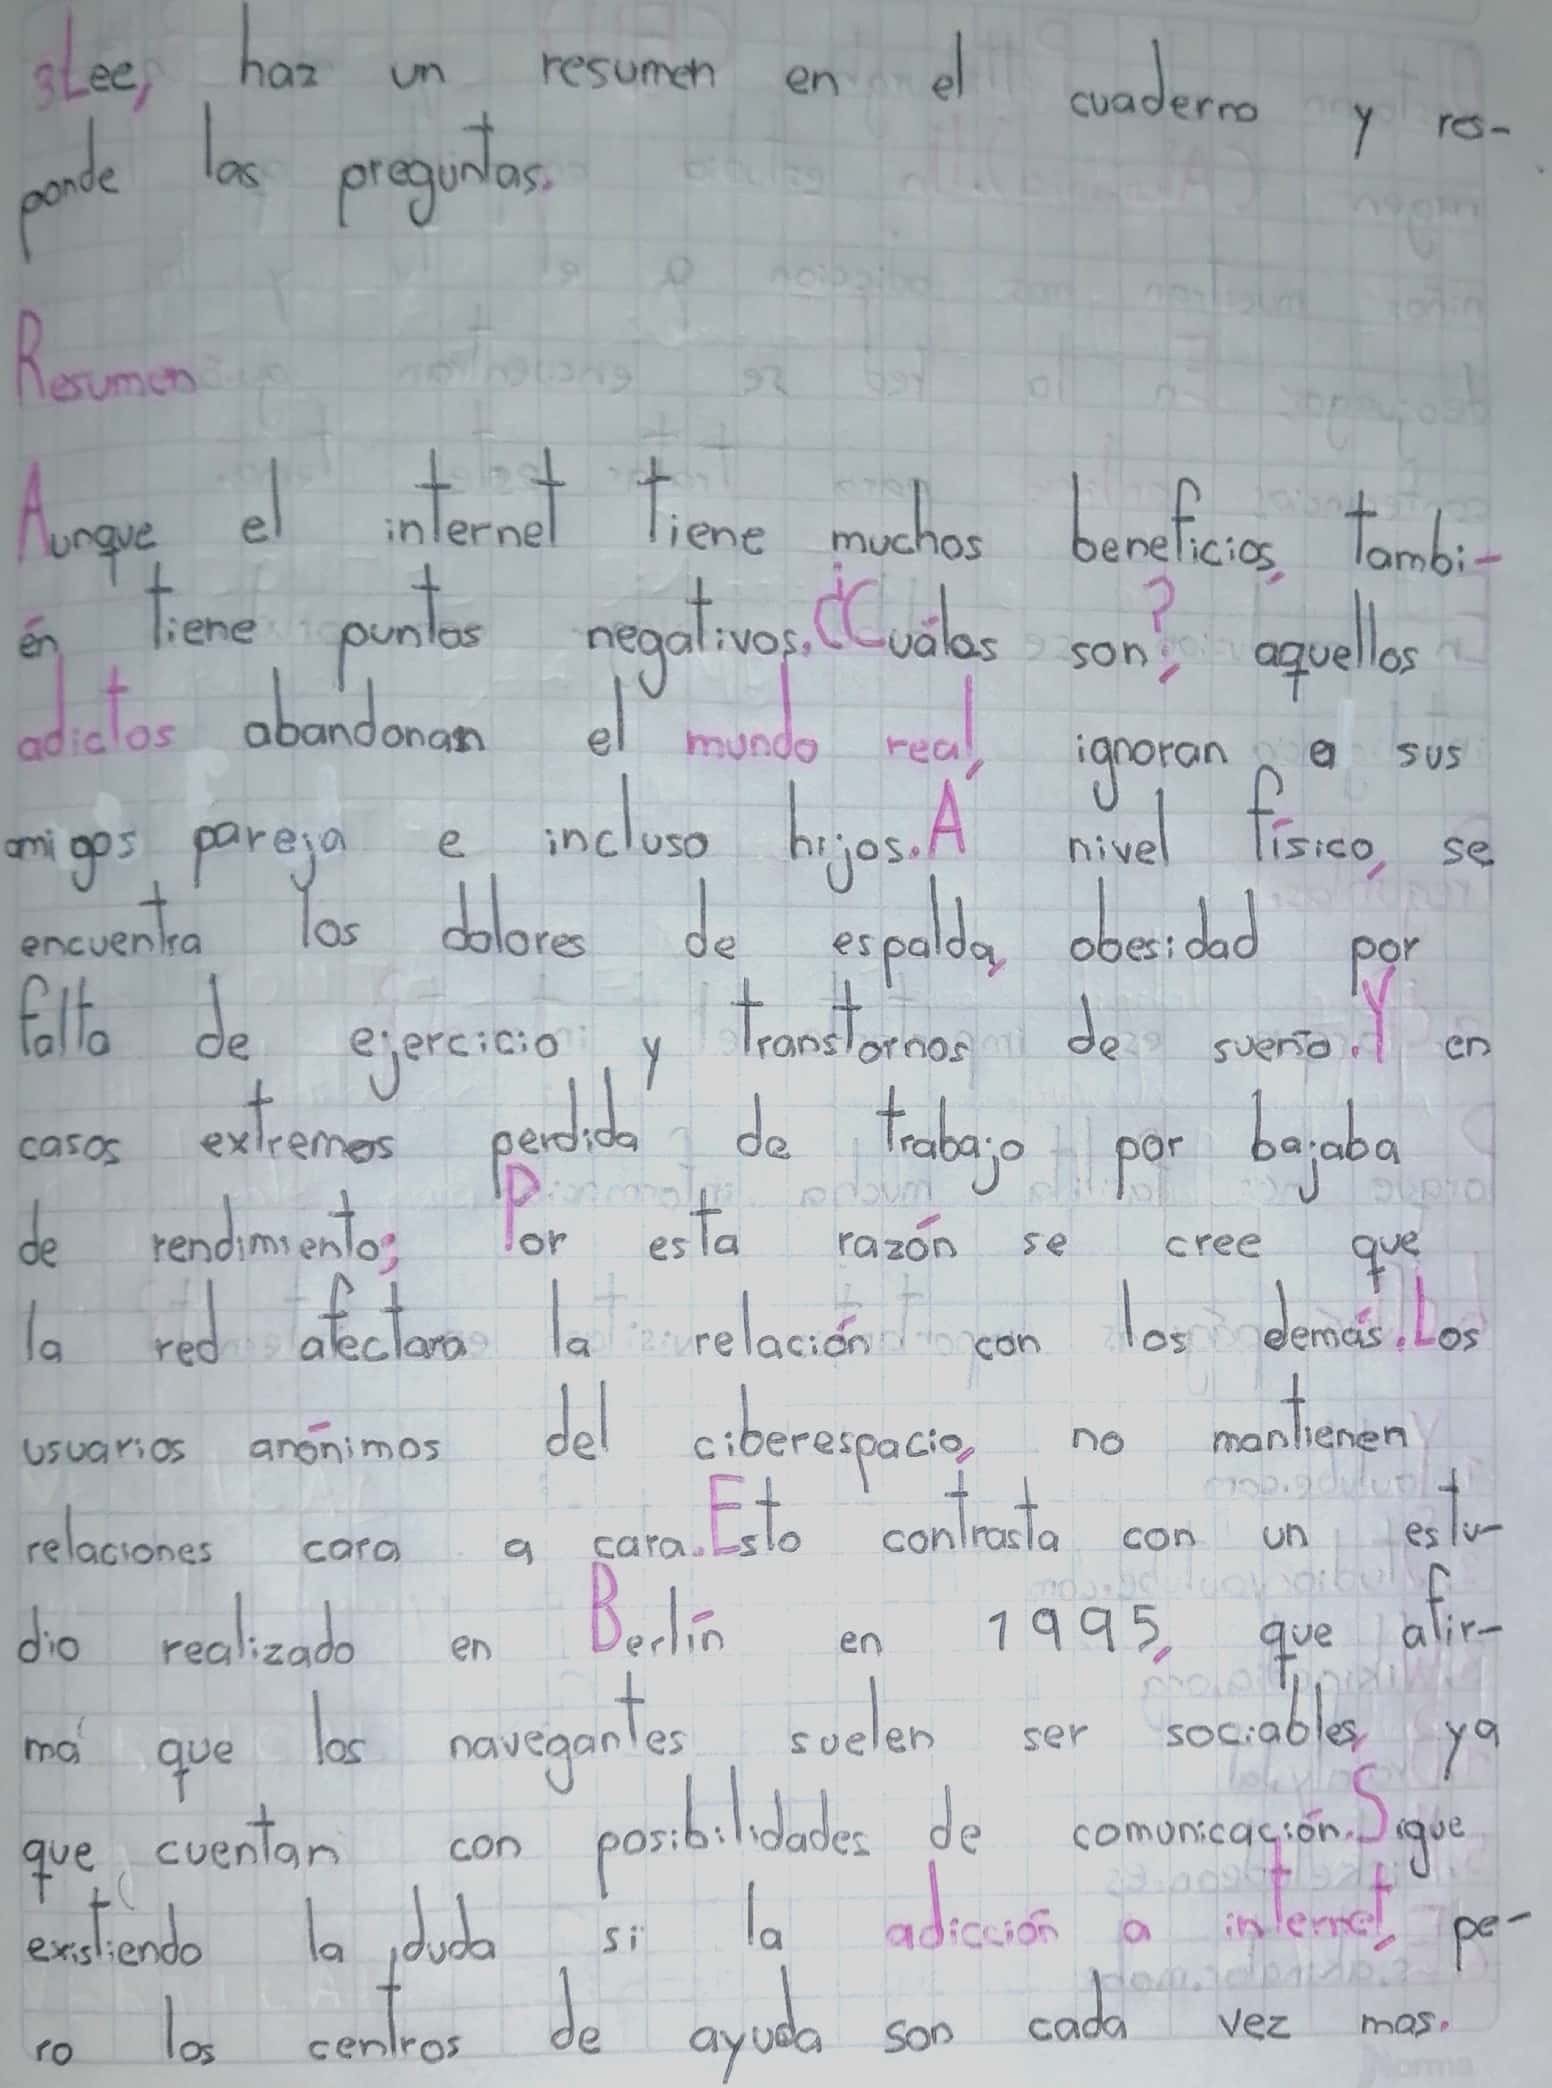 3Lee, haz un resumen en el cuaderno y res-
ponde las preguntas.
Resumen
Aunque el internet tiene muchos beneficios, tambi-
én tiene puntos negativos, ¿Cuáles son?, aquellos
adictos abandonan el mundo real, ignoran a sus
amigos pareja e incluso hijos. A nivel físico, se
encuentra los dolores de espalda, obesidad por
falta de ejercicio y transtornos de sueño. Y en
casos extremos perdida de trabajo por bajaba
de rendimiento; Por esta razón se cree que
la red afectara la relación con los demás. Los
usuarios anónimos del ciberespacio, no mantienen
relaciones cara a cara. Esto contrasta con un estu-
dio realizado en Berlín en 1995, que afir-
má que los navegantes suelen ser sociables, ya
que cuentan con posibilidades de comunicación. Sigue
existiendo la duda si la adicción a internet, pe-
ro los centros de ayuda son cada vez mas.